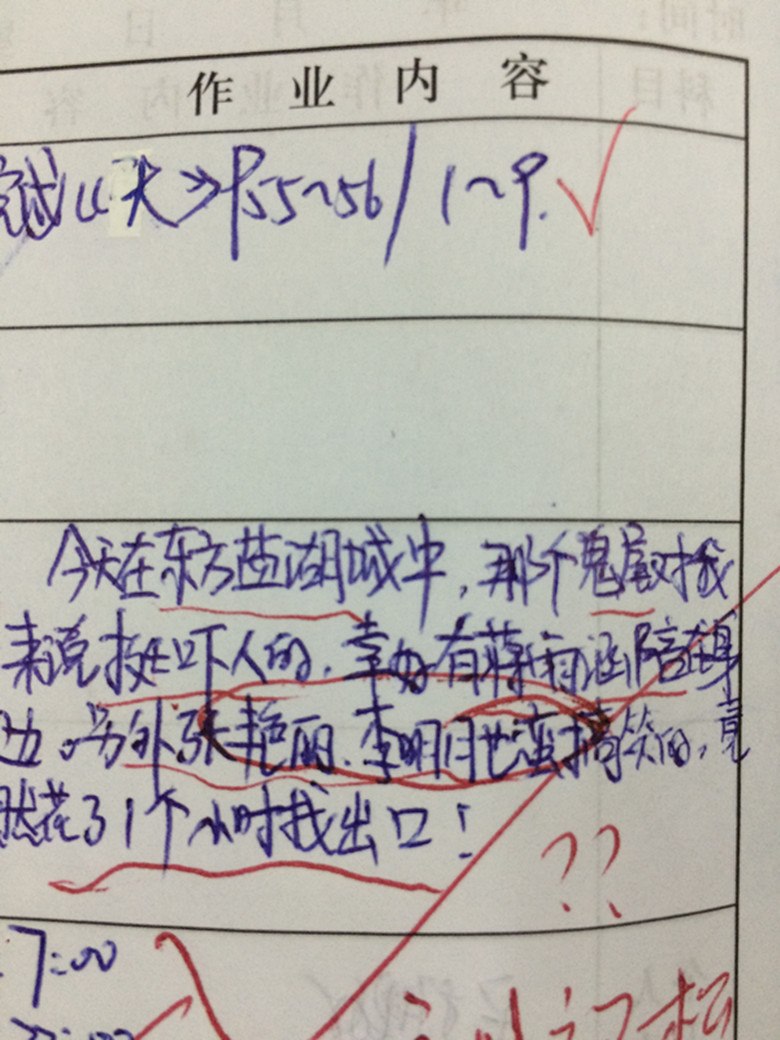 作业内容
试《大》P55~56/1~9.
今天在东方盐湖城中，那个鬼屋对我
来说挺吓人的，幸好有蒋雨涵陪在身
边。另外张艳丽、李明月也蛮搞笑的，竟
然花了1个小时找出口！
??
7:00